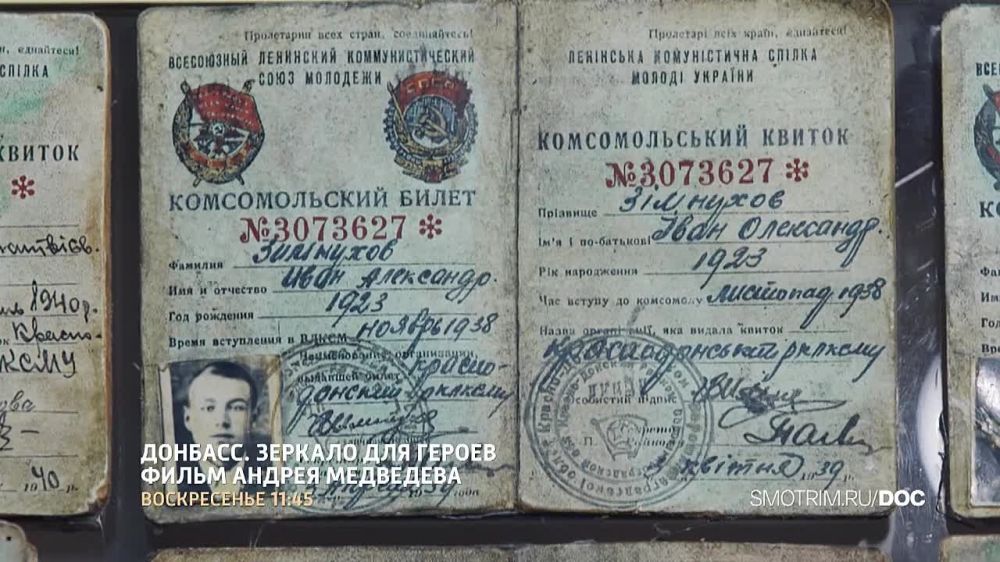 єднайтеся!
СПІЛКА
КВИТОК
*
1940 р.
Пролетарии всех стран, соединяйтесь!
ВСЕСОЮЗНЫЙ ЛЕНИНСКИЙ КОММУНИСТИЧЕСКИЙ
СОЮЗ МОЛОДЕЖИ
КОМСОМОЛЬСКИЙ БИЛЕТ
№3073627 *
Фамилия Зимнухов
Имя и отчество Иван Александр.
Год рождения 1923
Время вступления в ВЛКСМ ноябрь 1938
Наименование организации,
выдавшей билет Красно-
донский рклксму
Пролетарі всіх країн, єднайтеся!
ЛЕНІНСЬКА КОМУНІСТИЧНА СПІЛКА
МОЛОДІ УКРАЇНИ
КОМСОМОЛЬСЬКИЙ КВИТОК
№3073627 *
Прізвище Зімнухов
Ім'я і по-батькові Іван Олександр.
Рік народження 1923
Час вступу до комсомолу листопад 1938
Назва організації, яка видала квиток
Краснодонський рклксму
Особистий підпис
квітня 39 р.
ДОНБАСС. ЗЕРКАЛО ДЛЯ ГЕРОЕВ
ФИЛЬМ АНДРЕЯ МЕДВЕДЕВА
ВОСКРЕСЕНЬЕ 11:45
SMOTRIM.RU/DOC